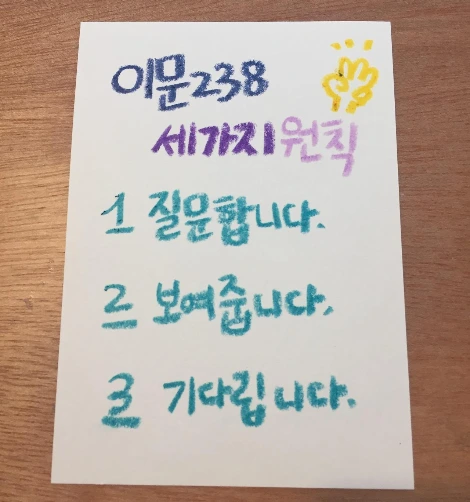 이문238
세가지원칙
1 질문합니다.
2 보여줍니다.
3 기다립니다.